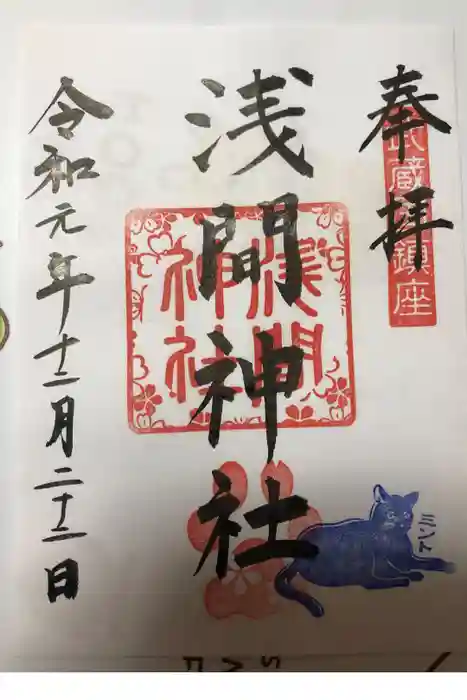 奉拝
武蔵 鎮座
浅間神社
浅間
神社
令和元年十二月二十二日
ミント